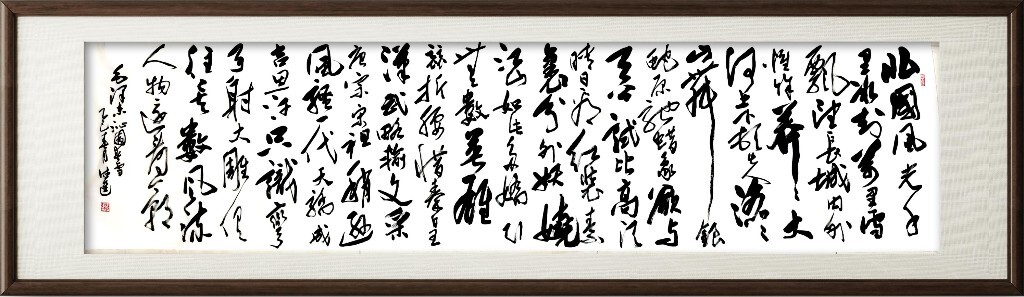 北國風光千
里冰封萬里雪
飄望長城内外
惟餘莽々大
河上下頓失滔々
山舞銀
蛇原馳蠟象欲与
天公試比高須
晴日看红装素
裹分外妖嬈
江山如此多嬌引
無數英雄
競折腰惜秦皇
漢武略輸文采
唐宗宋祖稍遜
風騷一代天驕成
吉思汗只識彎
弓射大雕俱
往矣數風流
人物還看今朝
毛澤東沁園春雪